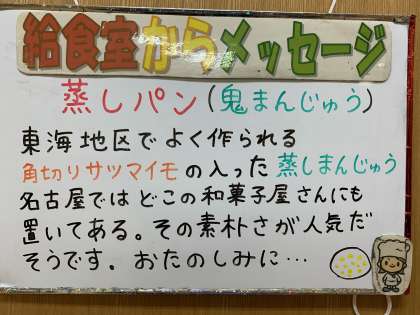 給食室からメッセージ
蒸しパン(鬼まんじゅう)
東海地区でよく作られる
角切りサツマイモの入った蒸しまんじゅう
名古屋ではどこの和菓子屋さんにも
置いてある。その素朴さが人気だ
そうです。おたのしみに…